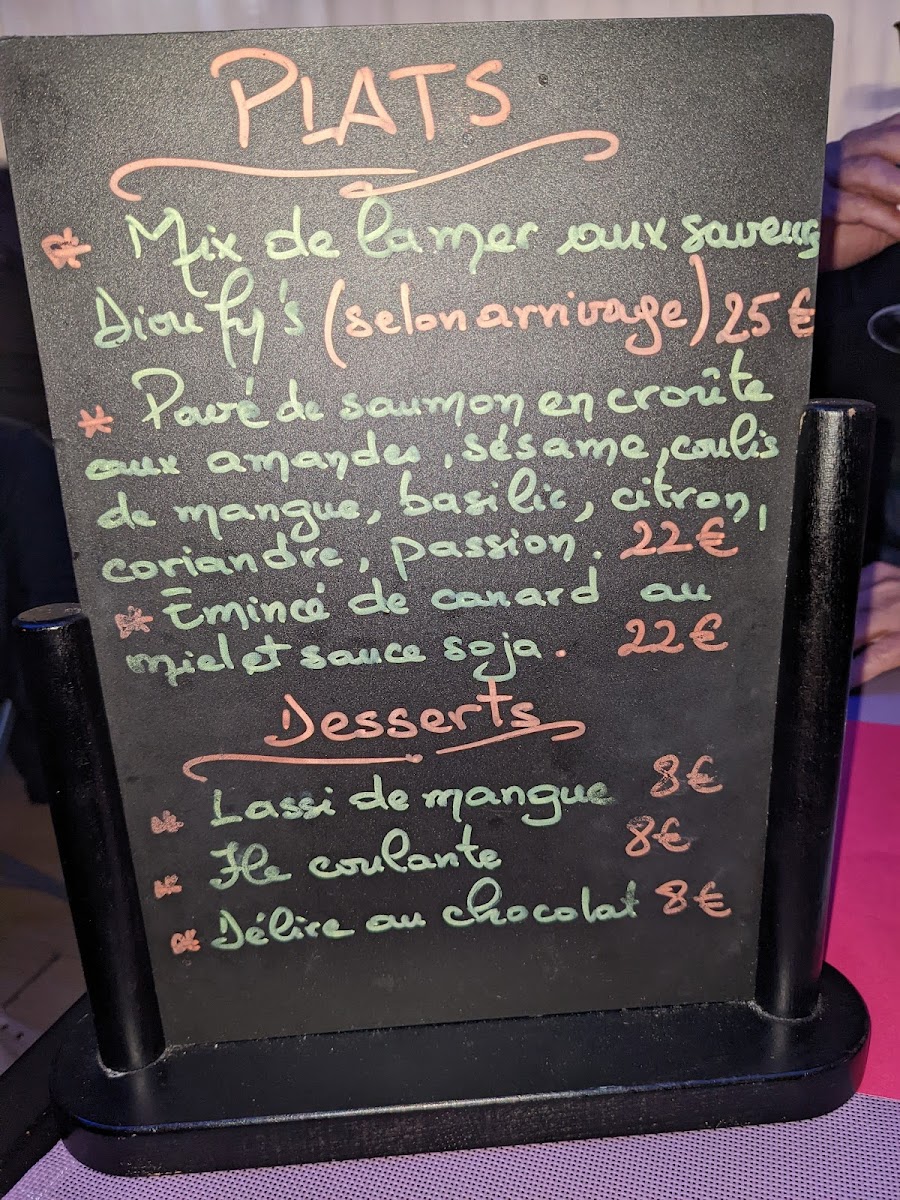 PLATS
* Mix de la mer aux saveurs
Dioufy's (selon arrivage) 25 €
* Pavé de saumon en croûte
aux amandes, sésame, coulis
de mangue, basilic, citron,
coriandre, passion. 22 €
* Émincé de canard au
miel et sauce soja. 22 €
Desserts
* Lassi de mangue 8 €
* Ile coulante 8 €
* Délire au chocolat 8 €